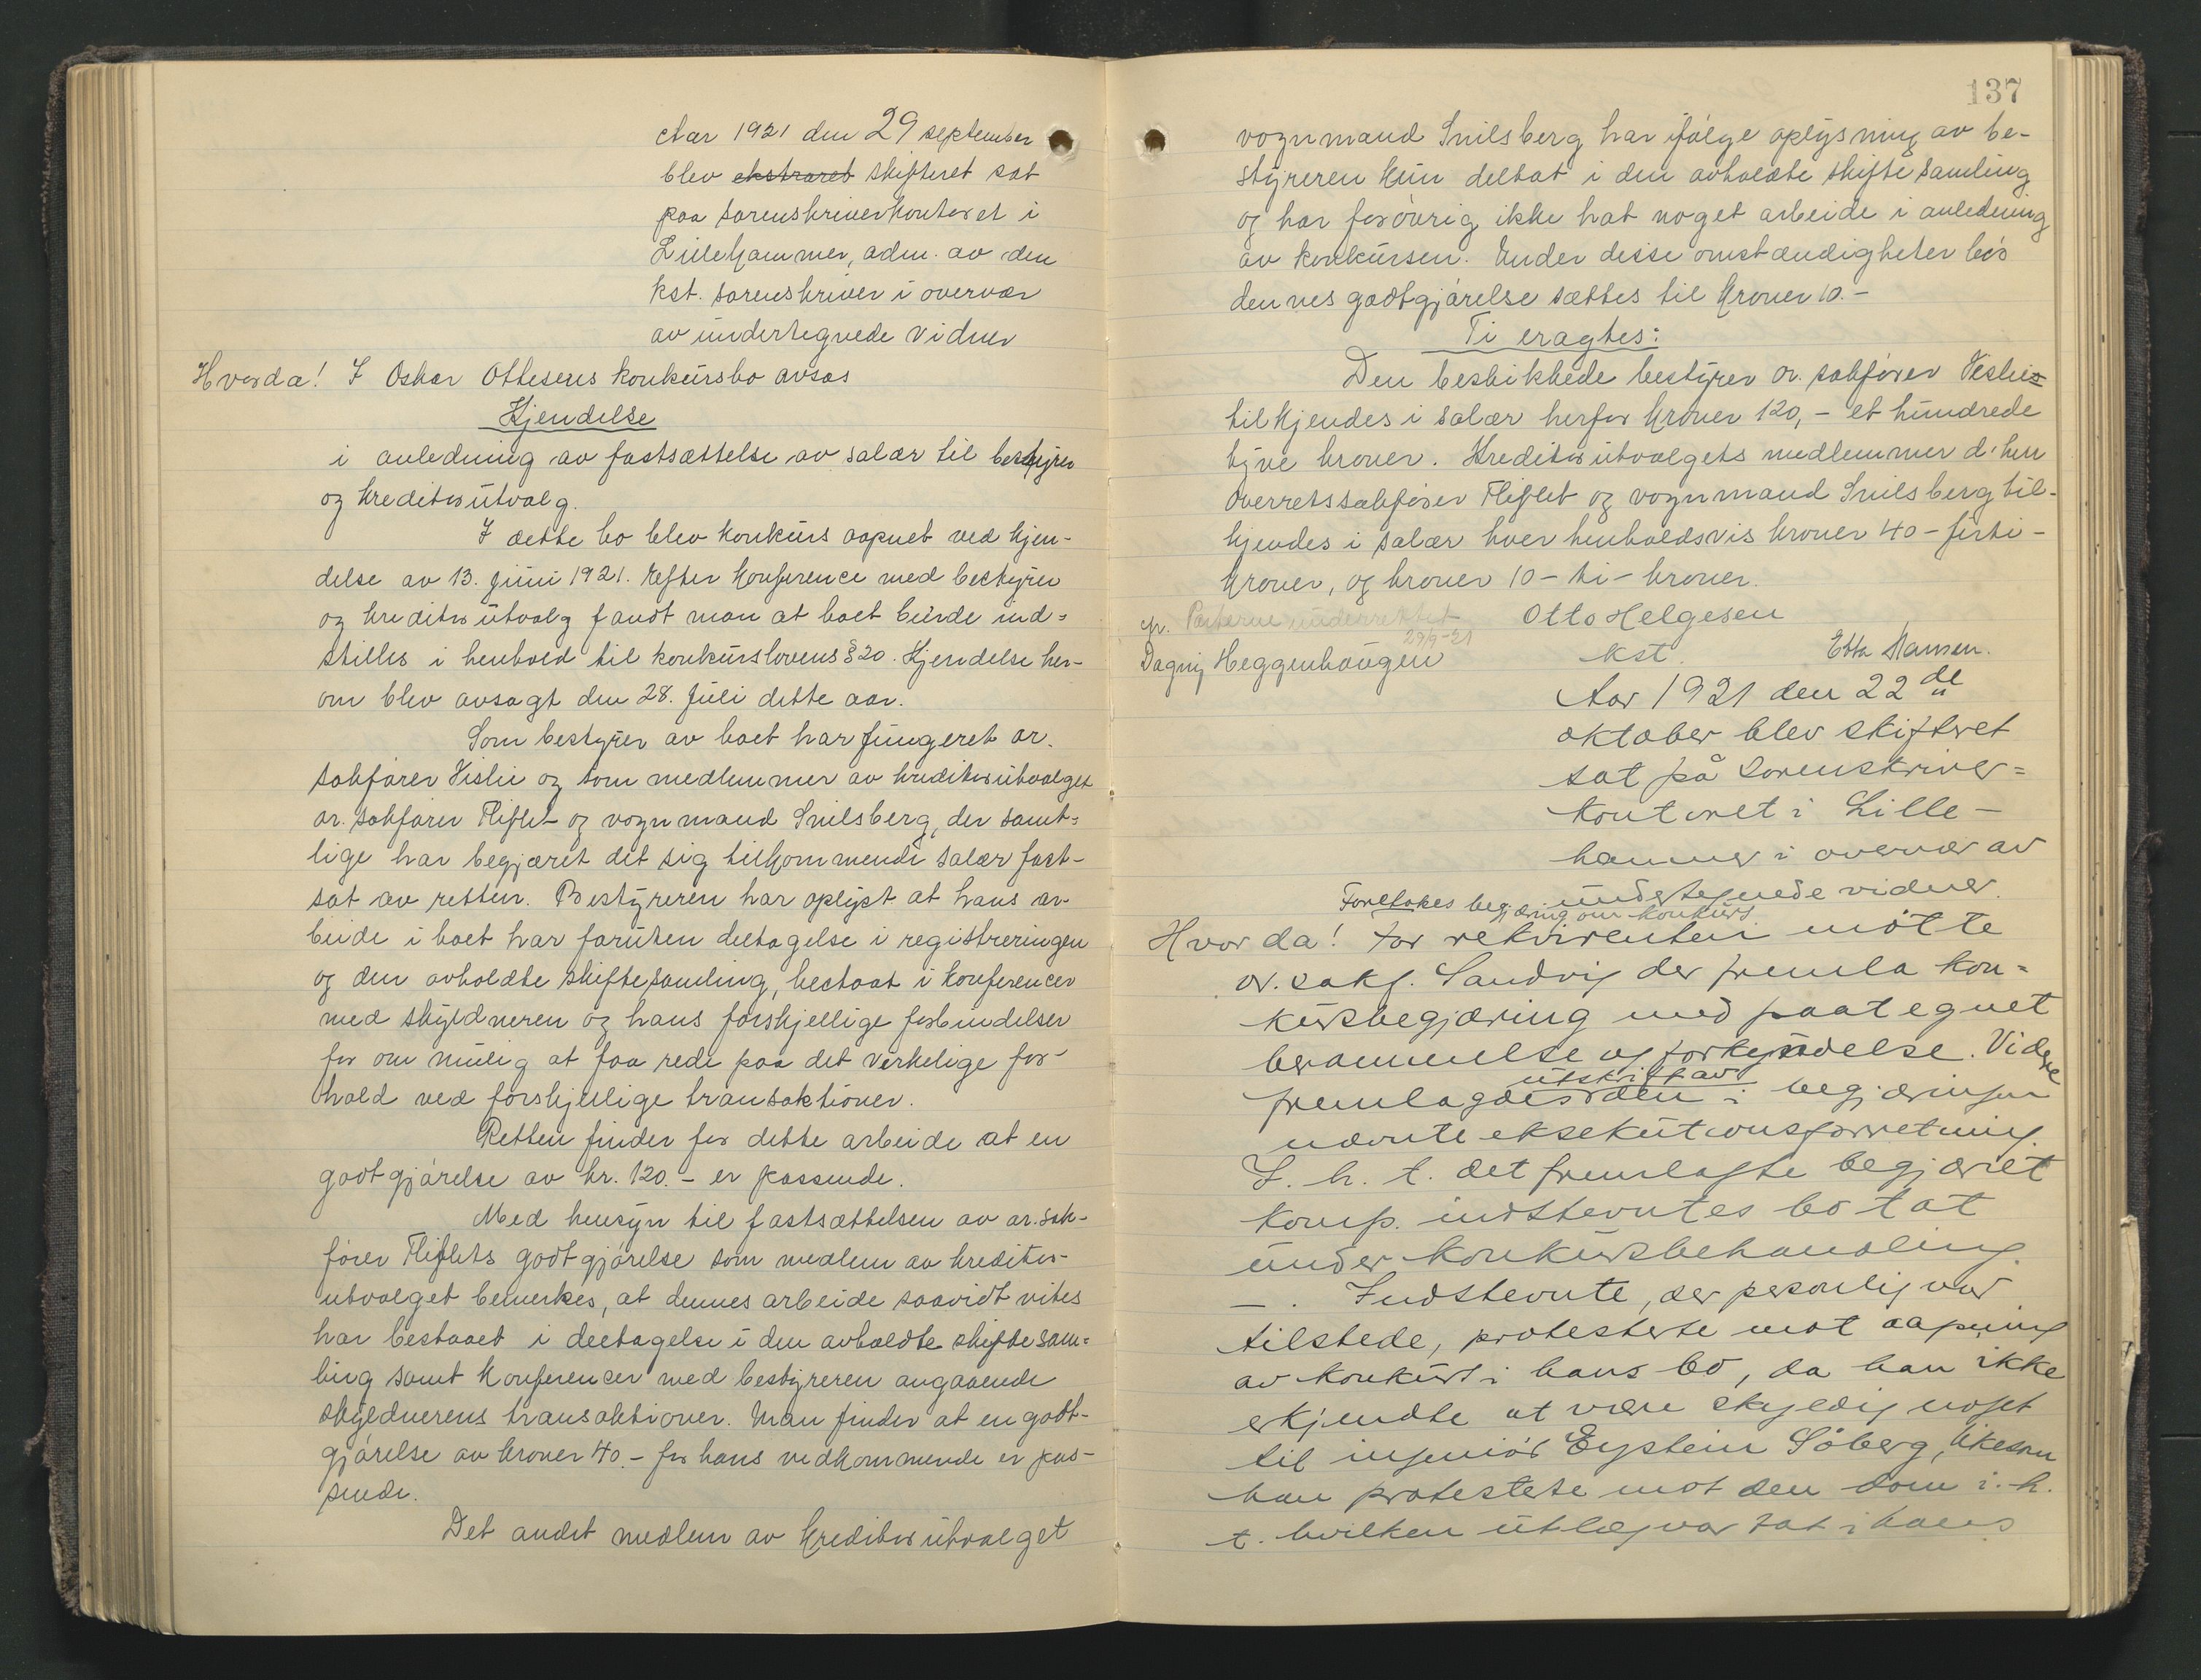 Aar 1921 den 29 september
blev ekstraret skifteret sat
paa sorenskriverkontoret i
Lillehammer, adm. av den
kst. sorenskriver i overvær
av undertegnede vidner
Hvorda! I Oskar Ottesens konkursbo avsas
Kjendelse
i anledning av fastsættelse av salær til bestyrer
og kreditorutvalg.
I dette bo blev konkurs aapnet ved kjen-
delse av 13. juni 1921. Efter konference med bestyrer
og kreditorutvalg fandt man at boet burde ind-
stilles i henhold til konkurslovens § 20. Kjendelse her-
om blev avsagt den 28. juli dette aar.
Som bestyrer av boet har fungeret or.
sakfører Vislie og som medlemmer av kreditorutvalget
or. sakfører Fliflet og vognmand Snilsberg, der samt-
lige har begjæret det sig tilkommende salær fast-
sat av retten. Bestyreren har oplyst at hans ar-
beide i boet har foruten deltagelse i registreringen
og den avholdte skiftesamling, bestaat i konferencer
med skyldneren og hans forskjellige forbindelser
for om mulig at faa rede paa det virkelige for-
hold ved forskjellige transaktioner.
Retten finder for dette arbeide at en
godtgjørelse av kr. 120.- er passende.
Med hensyn til fastsættelsen av or. sak-
fører Fliflets godtgjørelse som medlem av kreditor-
utvalget bemerkes, at dennes arbeide saavidt vites
har bestaaet i deltagelse i den avholdte skiftesam-
ling samt konferencer med bestyreren angaaende
skyldnerens transaktioner. Man finder at en godt-
gjørelse av kroner 40.- for hans vedkommende er pas-
sende.
Det andet medlem av kreditorutvalget
137
vognmand Snilsberg har ifølge oplysning av be-
styreren kun deltat i den avholdte skiftesamling
og har forøvrig ikke hat noget arbeide i anledning
av konkursen. Under disse omstændigheter bør
dennes godtgjørelse sættes til kroner 10.-
Ti eragtes:
Den beskikkede bestyrer or. sakfører Vislie
tilkjendes i salær herfor kroner 120,- et hundrede
tyve kroner. Kreditorutvalgets medlemmer d'herr
overretssakfører Fliflet og vognmand Snilsberg til-
kjendes i salær hver henholdsvis kroner 40 - firti -
kroner, og kroner 10 - ti - kroner.
Parterne underrettet Otto Helgesen
29/9-21
Dagny Heggenhougen kst. Ebba Hansen.
Aar 1921 den 22de
oktober blev skifteret
sat på Sorenskriver-
kontoret i Lille-
hammer i overvær av
undertegnede vidner.
Foretokes begjæring om konkurs
Hvor da! For rekvirenten møtte
or. sakf. Sandvig der fremla kon-
kursbegjæring med paategnet
berammelse og forkyndelse. Videre
utskrift av
fremlagdes den i begjæringen
nævnte eksekutionsforretning.
I. h. t. det fremlagte begjæret
komp. indstevntes bo tat
under konkursbehandling.
- . Indstevnte, der personlig var
tilstede, protesterte mot aapning
av konkurs i hans bo, da han ikke
erkjendte at være skyldig noget
til ingeniør Eystein Söberg, likesom
han protesterte mot den dom i. h.
t. hvilken utlæg var tat i hans